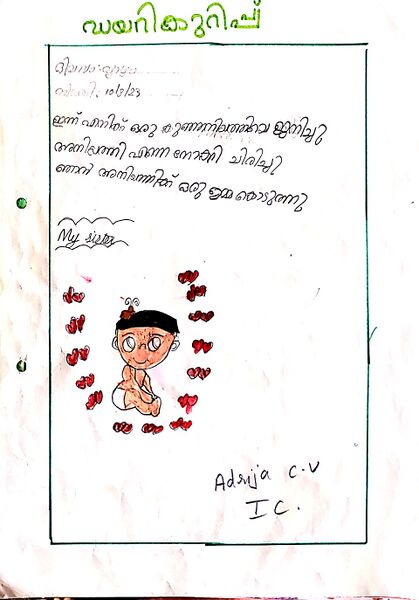 ഡയറിക്കുറിപ്പ്
തിയതി: 10/3/23
ഇന്ന് എനിക്ക് ഒരു കുഞ്ഞനിയത്തിവാവ ജനിച്ചു
അനിയത്തി എന്നെ നോക്കി ചിരിച്ചു
ഞാൻ അനിയത്തിക്ക് ഒരു ഉമ്മ കൊടുത്തു
My sister
Adrija C.V
I C.